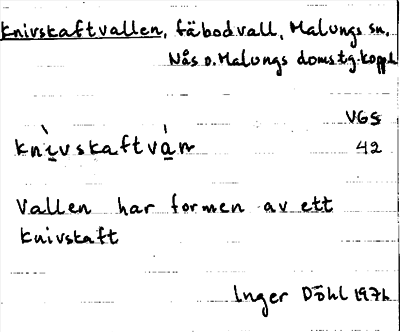 Knivskaftvallen, fäbodvall, Malungs sn,
Nås o. Malungs domstg.koppl
VGS
knìvskaftván 42
Vallen har formen av ett
knivskaft
Inger Döhl 1971